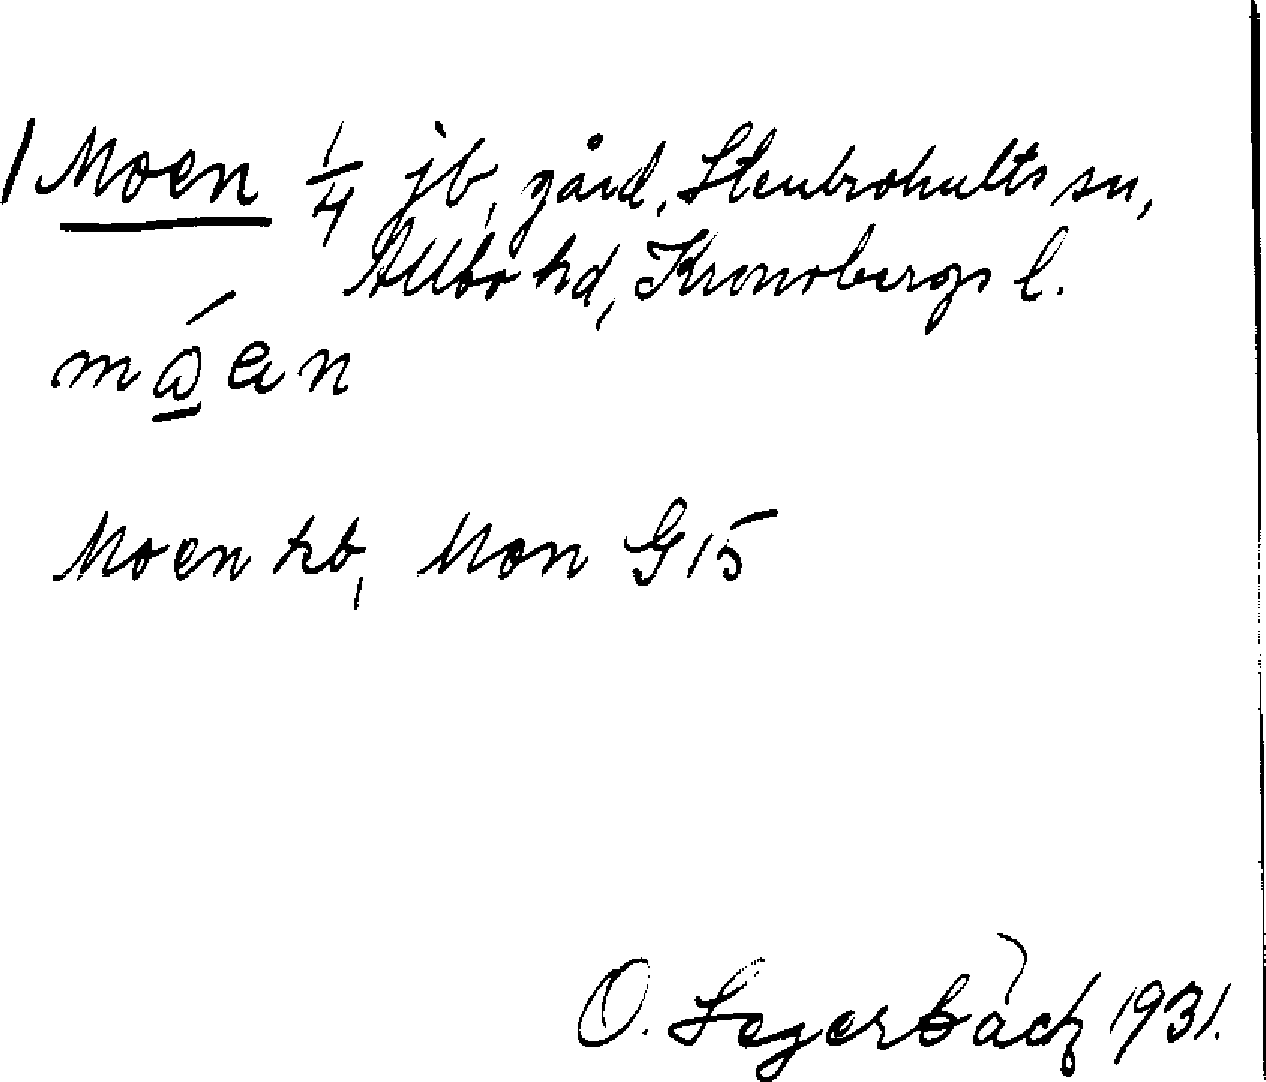 1 Moen 1/4 jb, gård, Stenbrohults sn,
Allbo hd, Kronobergs l.
Moen kb, Mon G 15
O. 1931.